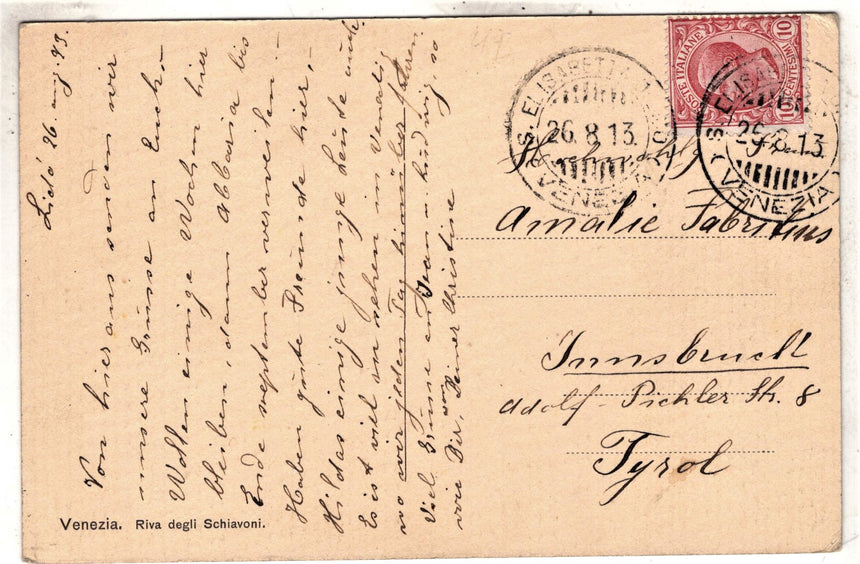 Lido 26 aug 93.
Von hier aus senden wir
unsere Grüsse an Euch.
Wollen einige Wochen hier
bleiben, dann Abbazia bis
Ende september verweilen.
Haben gute Freunde hier,
Hildas einige junge Leute auch.
Es ist viel zu sehen in Venedig
wo wir jeden Tag hinüber fahren.
Viel Grüsse an Jean u. Ludwig so
wie Dir, von Deiner Christine
POSTE ITALIANE
CENTESIMI 10
S. ELISABETTA
26.8.13
VENEZIA
S. ELISABETTA
26.8.13.
VENEZIA
Amalie Fabritius
Innsbruck
Adolf-Pichler Str. 8
Tyrol
Venezia. Riva degli Schiavoni.
47